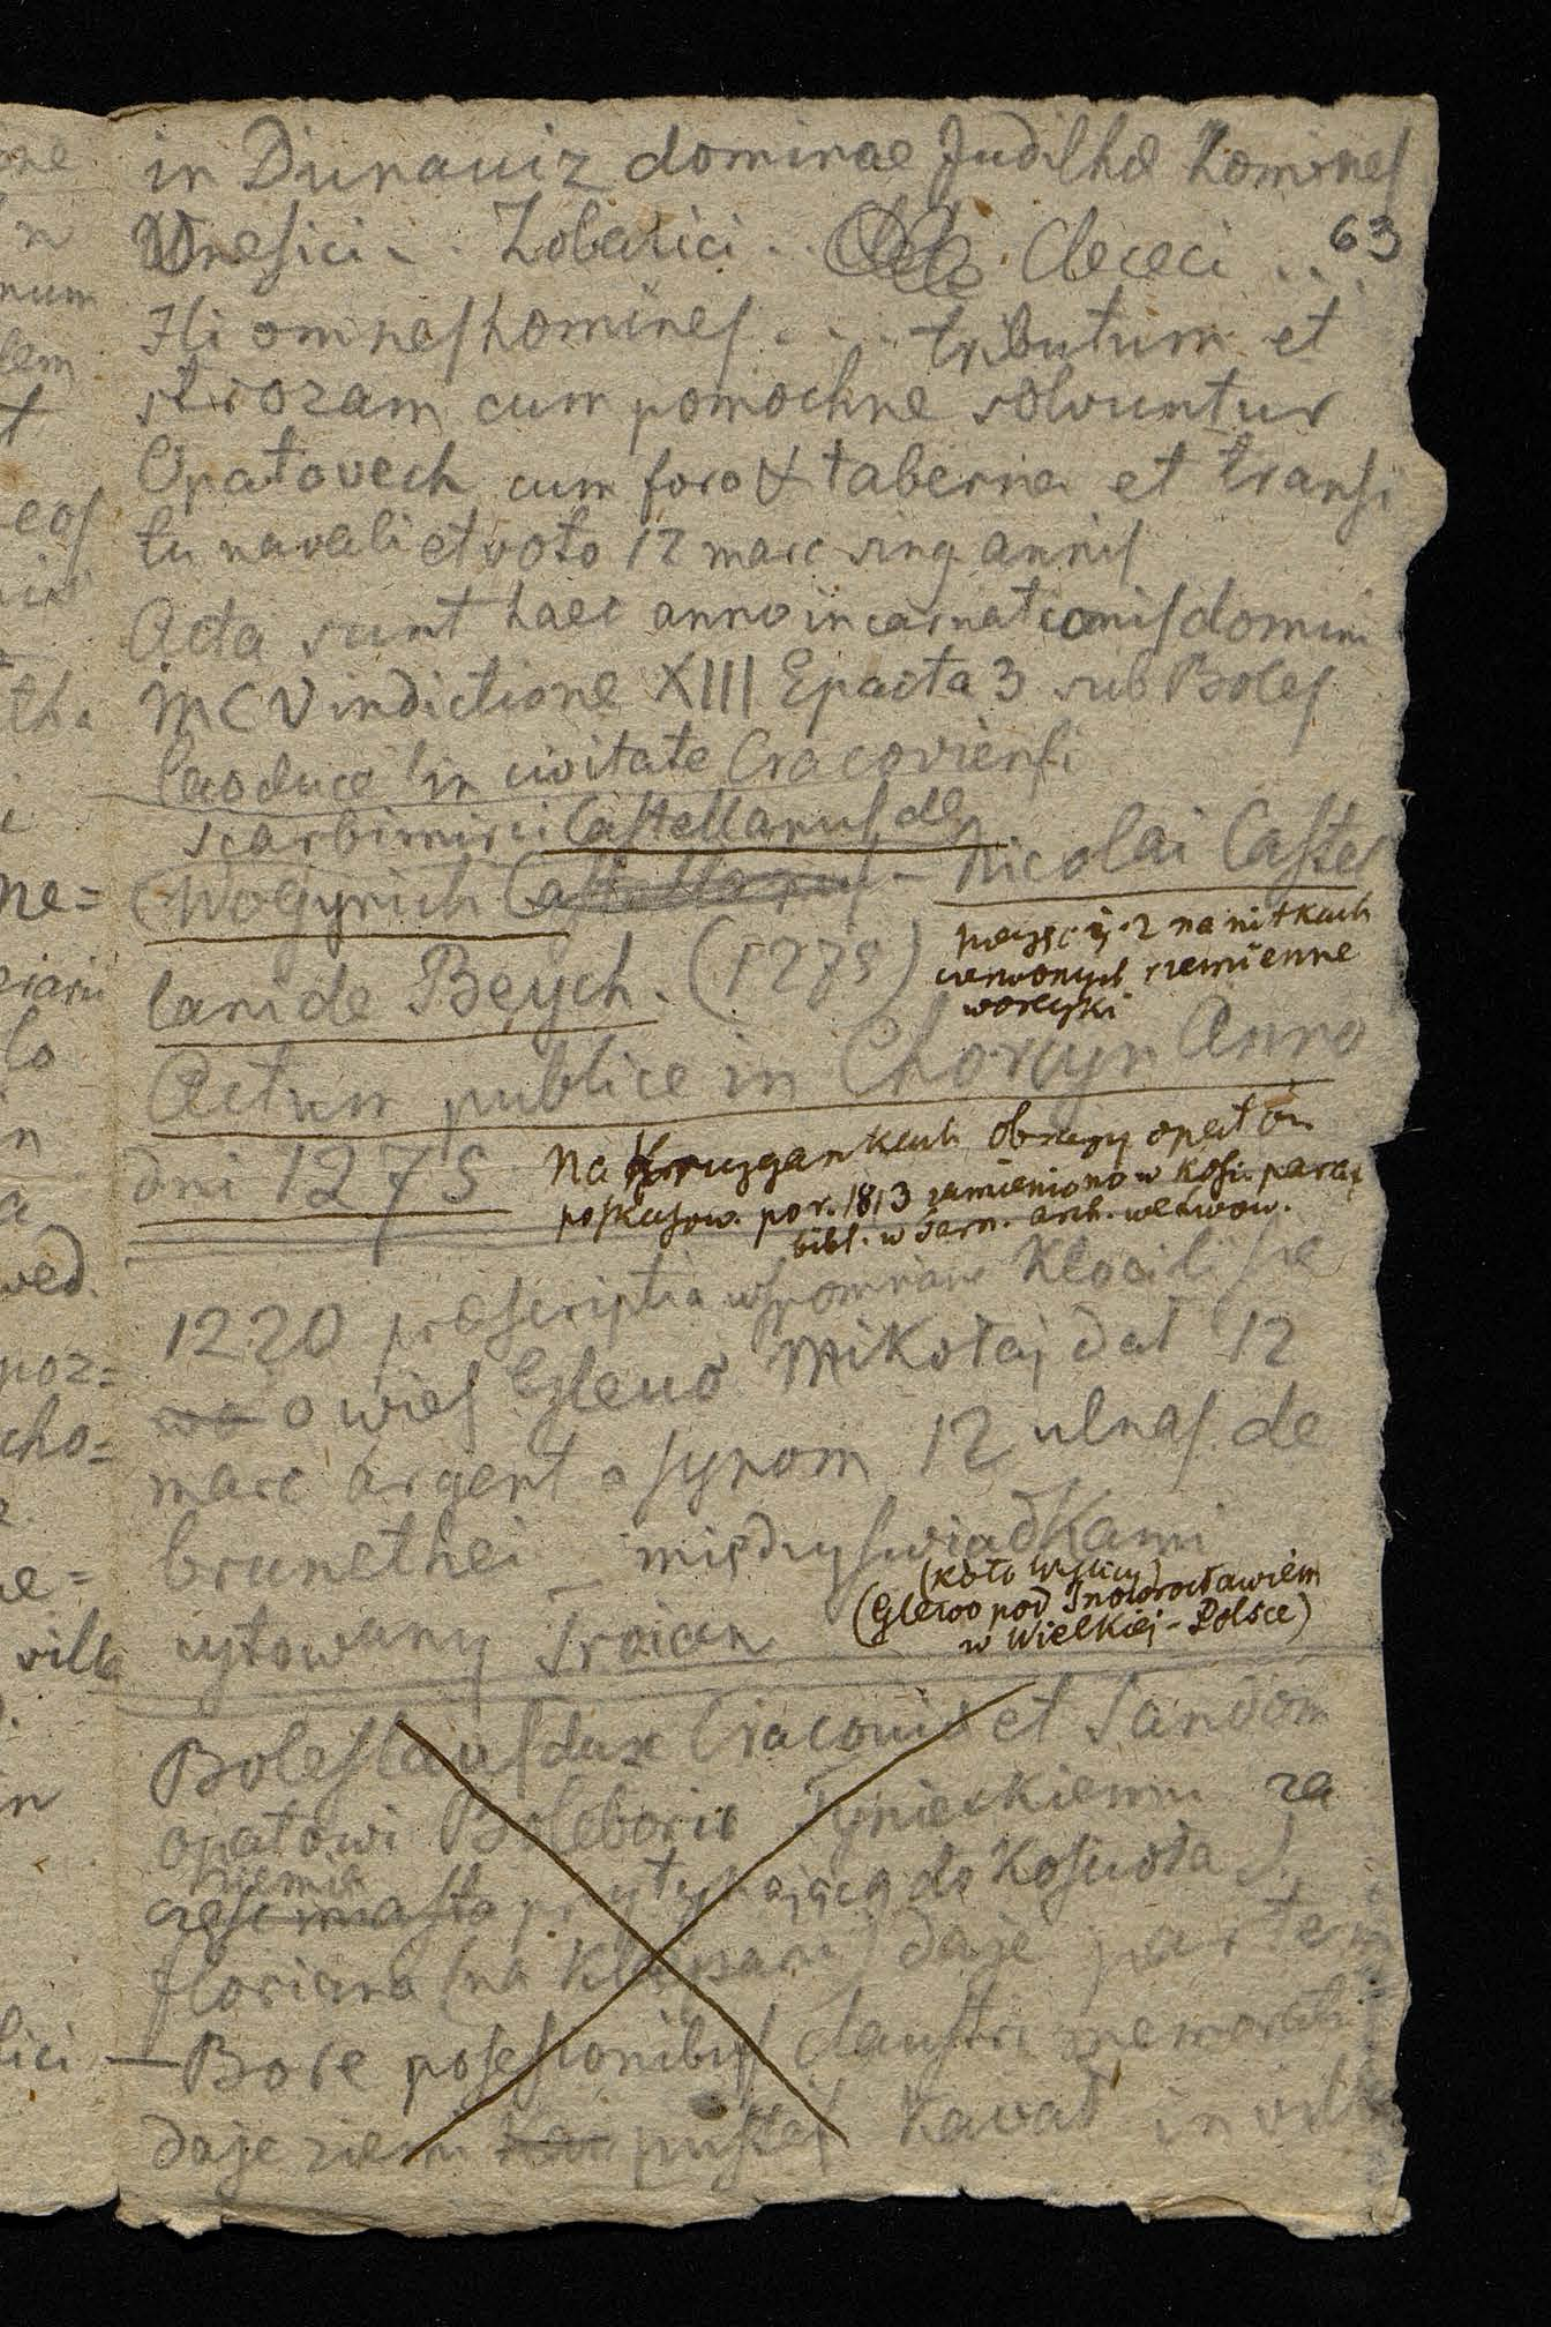 in Dunauiz dominae Judithae homines
63
Unesici - . . Zobatici . . Clececi . . .
Hi omnes homines . . . tributum et
strozam cum pomochne solvuntur
Opatovech cum foro & taberna et transi
tu navali et voto 12 marc sing annis
Acta sunt haec anno incarnationis domini
MCV indictione XIII Epacta 3 sub Boles
lao duce in civitate Cracoviensi
scarbimirci Castellanus de
(Woyynich Castellanus - Nicolai Castel
lani de Beych. (1275)
2 na nitkach
czerwonych rzemienne
woreczki
Actum publice in Chorcyn Anno
dni 1275
Na Kruzgankach obrazy opatów
poskasow. po r. 1813 zamieniono w kośc. paraf
bibl. w Tarn. arch. we Lwow.
1220 praescriptia wspomniani kłócili sie
o wies Glewo Mikołaj dał 12
marc argent a synom 12 ulnas de
brunethei - między swiadkami
(koło Wislicy)
(Glewo pod Inowrocławiem
w Wielkiej-Polsce)
cytowany Troian
Boleslaus dux Cracovie et Sandom
opatowi Boleborio Tynieckiemu za
ziemia
część miasta przytykającą do Koscioła S.
floriana (na Kleparu) daje partem
- Bore posesionibus claustri memorati
daje ziemi pustej Kavał in villa